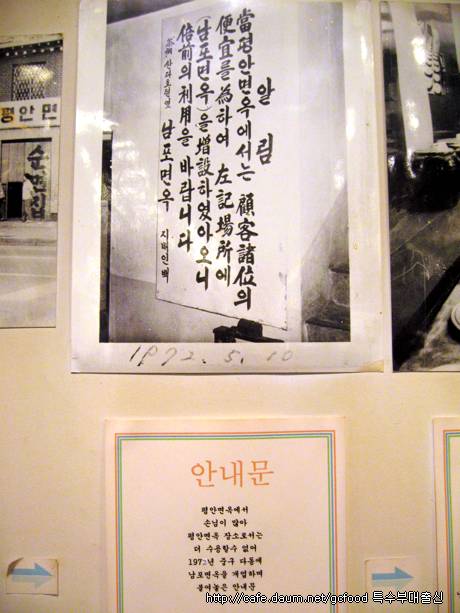 평안면
순면집
알림
當평안면옥에서는 顧客諸位의
便宜를爲하여 左記場所에
(남포면옥)을增設하였아오니
倍前의利用을 바랍니다
남포면옥 지배인백
1972. 5. 10
안내문
평안면옥에서
손님이 많아
평안면옥 장소로서는
더 수용할수 없어
1972년 중구 다동에
남포면옥을 개업하며
붙여놓은 안내문
http://cafe.daum.net/gcfood 특수부대출신